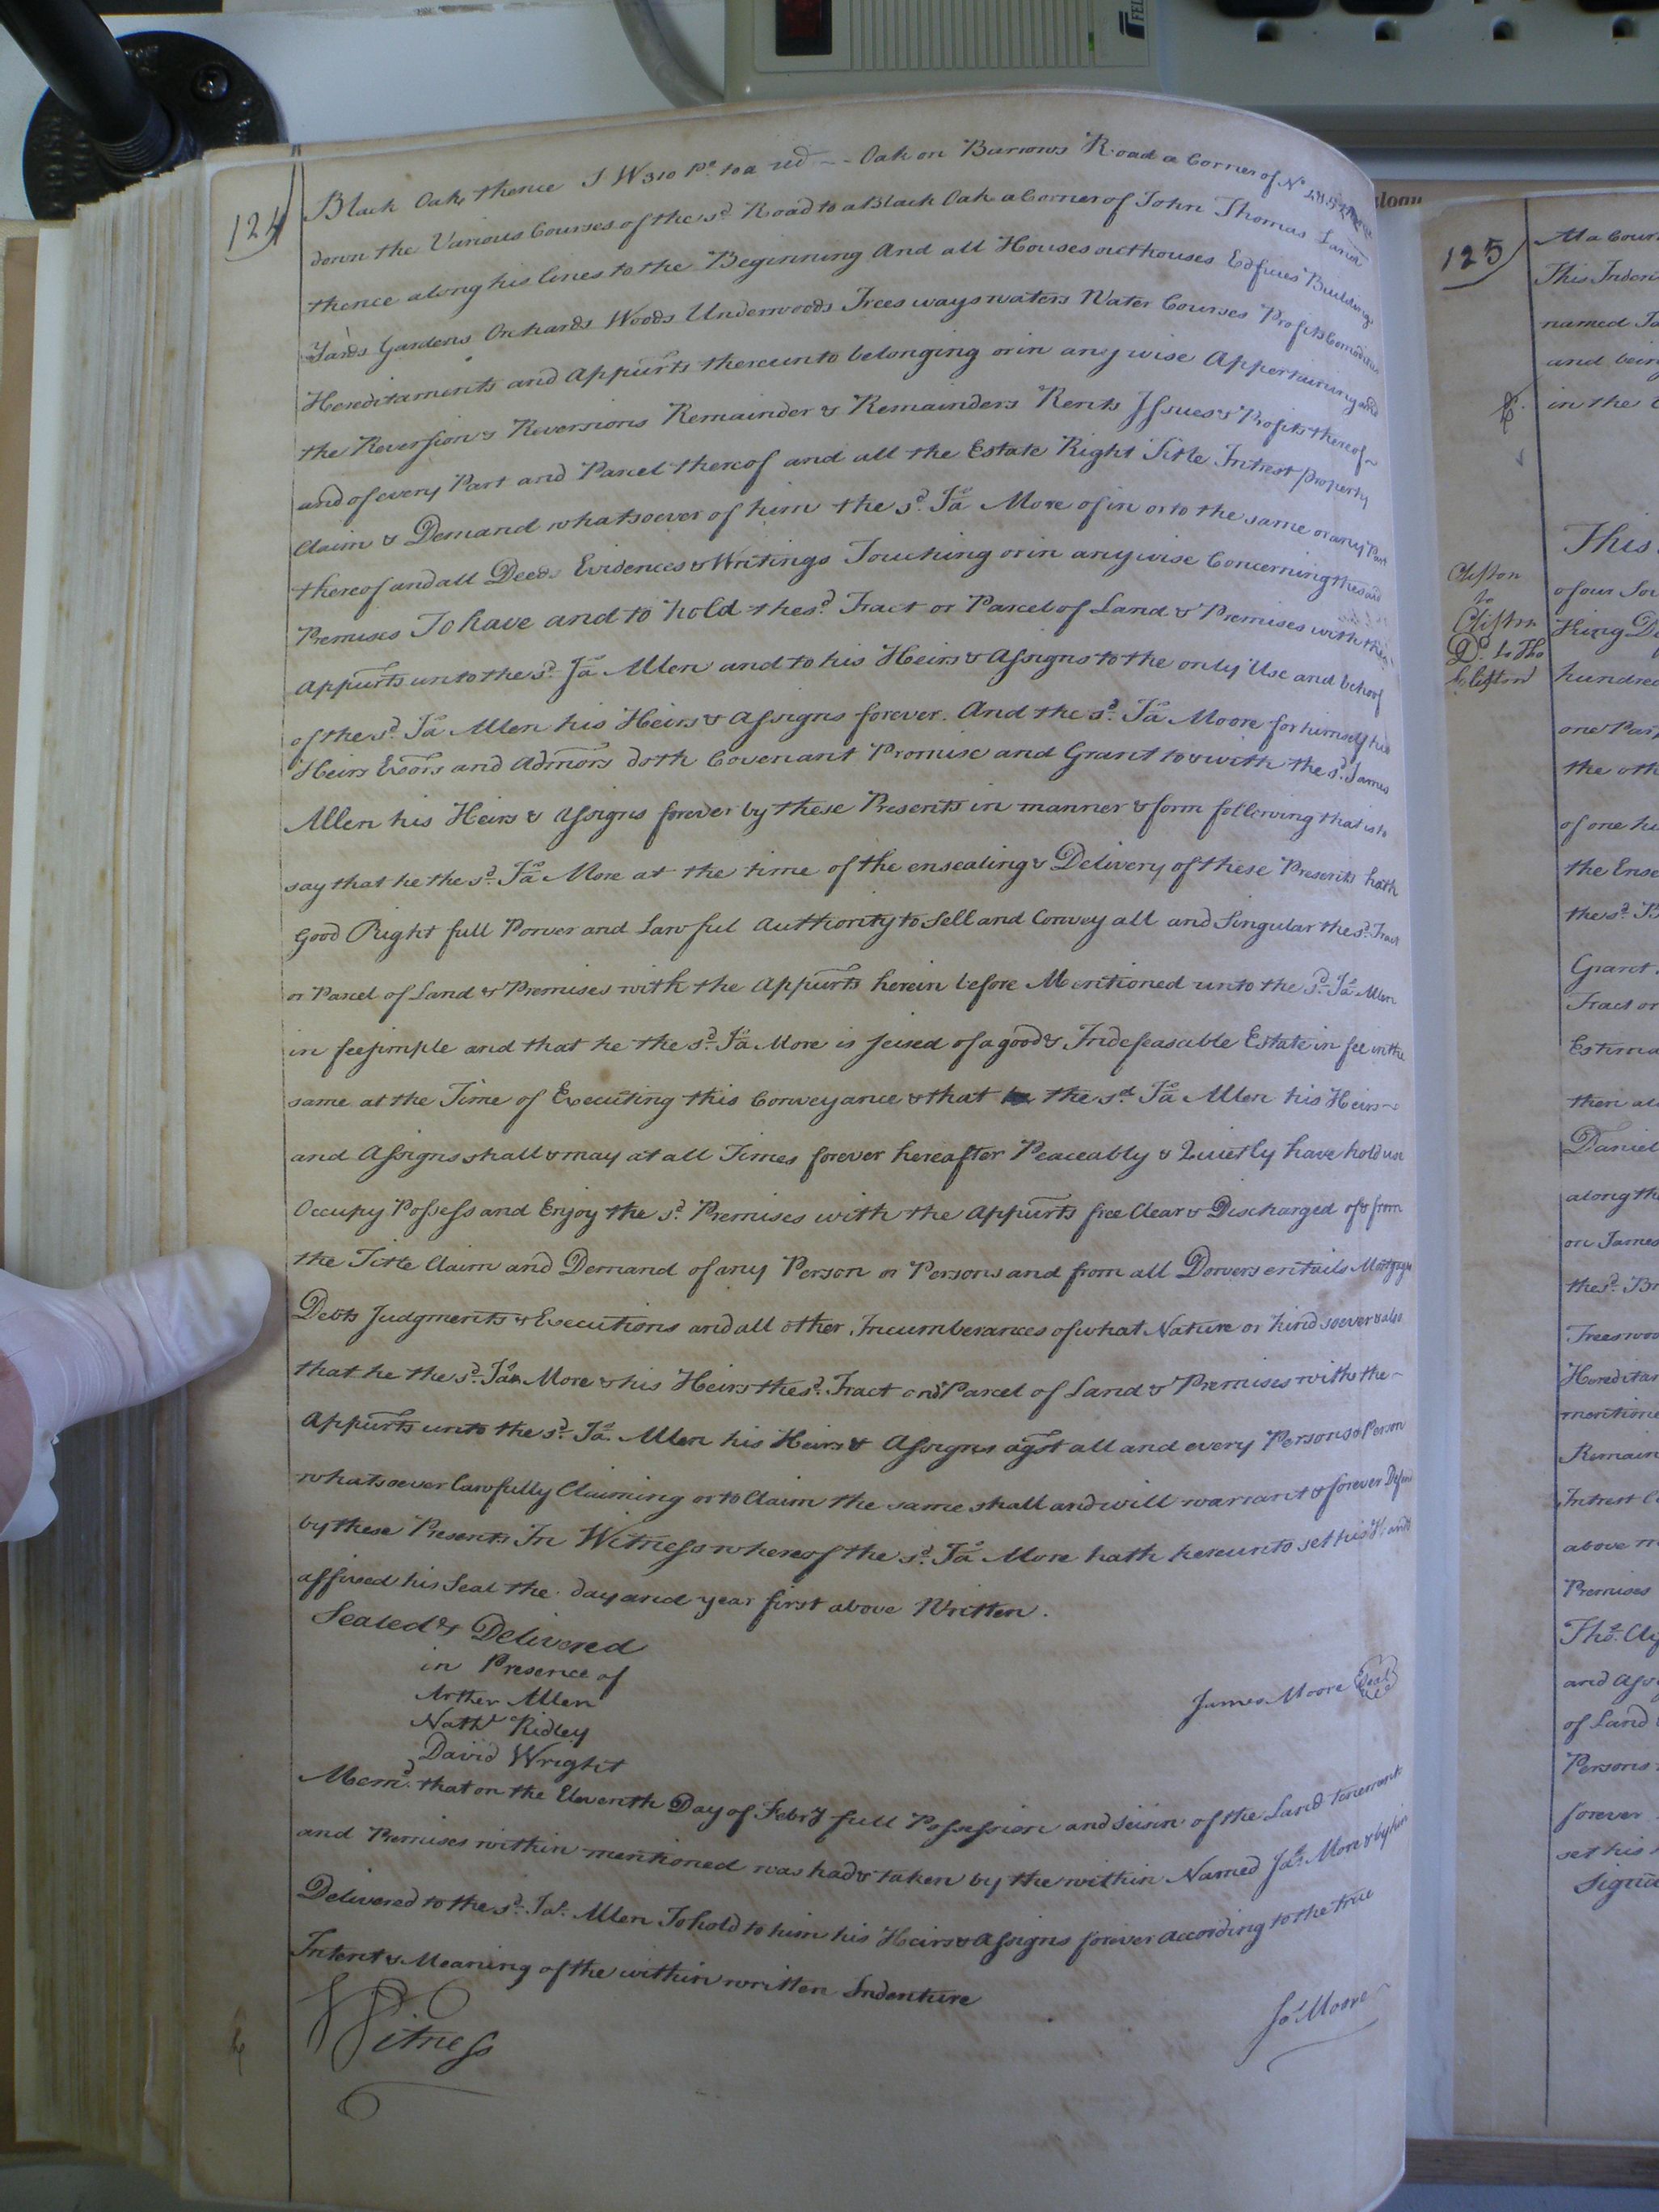 124
Black Oak, thence S W 310 Ps. to a red -- Oak on Barrows Road a Corner of No.
down the Various Courses of the sd. Road to a Black Oak a Corner of John Thomas Land
thence along his lines to the Beginning And all Houses outhouses Edfices Buildings
Yards Gardens Orchards Woods Underwoods Trees ways waters Water Courses Profits
Hereditaments and Appurts thereunto belonging or in any wise Appertaining and
the Reversion & Reversions Remainder & Remainders Rents Issues & Profits thereof
and of every Part and Parcel thereof and all the Estate Right Title Intrest property
Claim & Demand whatsoever of him the sd. Jas More of in or to the same or any Part
thereof and all Deeds Evidences & Writings Touching or in any wise Concerning the said
Premises To have and to hold the sd. Tract or Parcel of Land & Premises with the
Appurts unto the sd. Jas Allen and to his Heirs & Assigns to the only Use and behoof
of the sd. Jas Allen his Heirs & Assigns forever. And the sd. Jas Moore for himself his
Heirs Exors and Admors doth Covenant Promise and Grant to & with the sd. James
Allen his Heirs & Assigns forever by these Presents in manner & form following that is to
say that he the sd. Jas More at the time of the ensealing & Delivery of these Presents hath
Good Right full Power and Lawful Authority to Sell and Convey all and Singular the sd. Tract
or Parcel of Land & Premises with the Appurts herein before Mentioned unto the sd. Jas Allen
in feesimple and that he the sd. Jas More is seised of a good & Indefeasable Estate in fee in the
same at the Time of Executing this Conveyance & that the sd. Jas Allen his Heirs
and Assigns shall & may at all Times forever hereafter Peaceably & Quietly have hold use
Occupy Possess and Enjoy the sd. Premises with the Appurts free Clear & Discharged of & from
the Title Claim and Demand of any Person or Persons and from all Dowers entails Mortgages
Debts Judgments & Executions and all other Incumberances of what Nature or kind soever & also
that he the sd. Jas More & his Heirs the sd. Tract and Parcel of Land & Premises with the
Appurts unto the sd. Jas. Allen his Heirs & Assigns agst all and every Persons & Person
whatsoever lawfully Claiming or to Claim the same shall and will warrant & forever Defend
by these Presents In Witness whereof the sd. Jas More hath hereunto set his Hand &
affixed his Seal the day and year first above Written.
Sealed & Delivered
in Presence of
Arther Allen
James Moore Seal
Nathl Ridley
David Wright
Memd. that on the Eleventh Day of Febry full Possession and Seisin of the Land tenement
and Premises within mentioned was had & taken by the within Named Jas. More & by him
Delivered to the sd. Jas. Allen To hold to him his Heirs & Assigns forever According to the true
Intent & Meaning of the within written Indenture
Witness
Jas Moore
125
At a Cour
This Inden
named Ja
and bein
in the
This
Clifton
to
Clifton
Do. to Tho
Clifton
of our
King
hundred
one Part
the oth
of one hu
the Ense
the sd. B
Grant
Tract or
Estima
then al
Daniel
along th
on James
the sd. Br
Trees woo
Hereditar
mentione
Remain
Intrest C
above m
Premises
Thos. Cli
and Ass
of Land
Persons
forever
set his
Signd